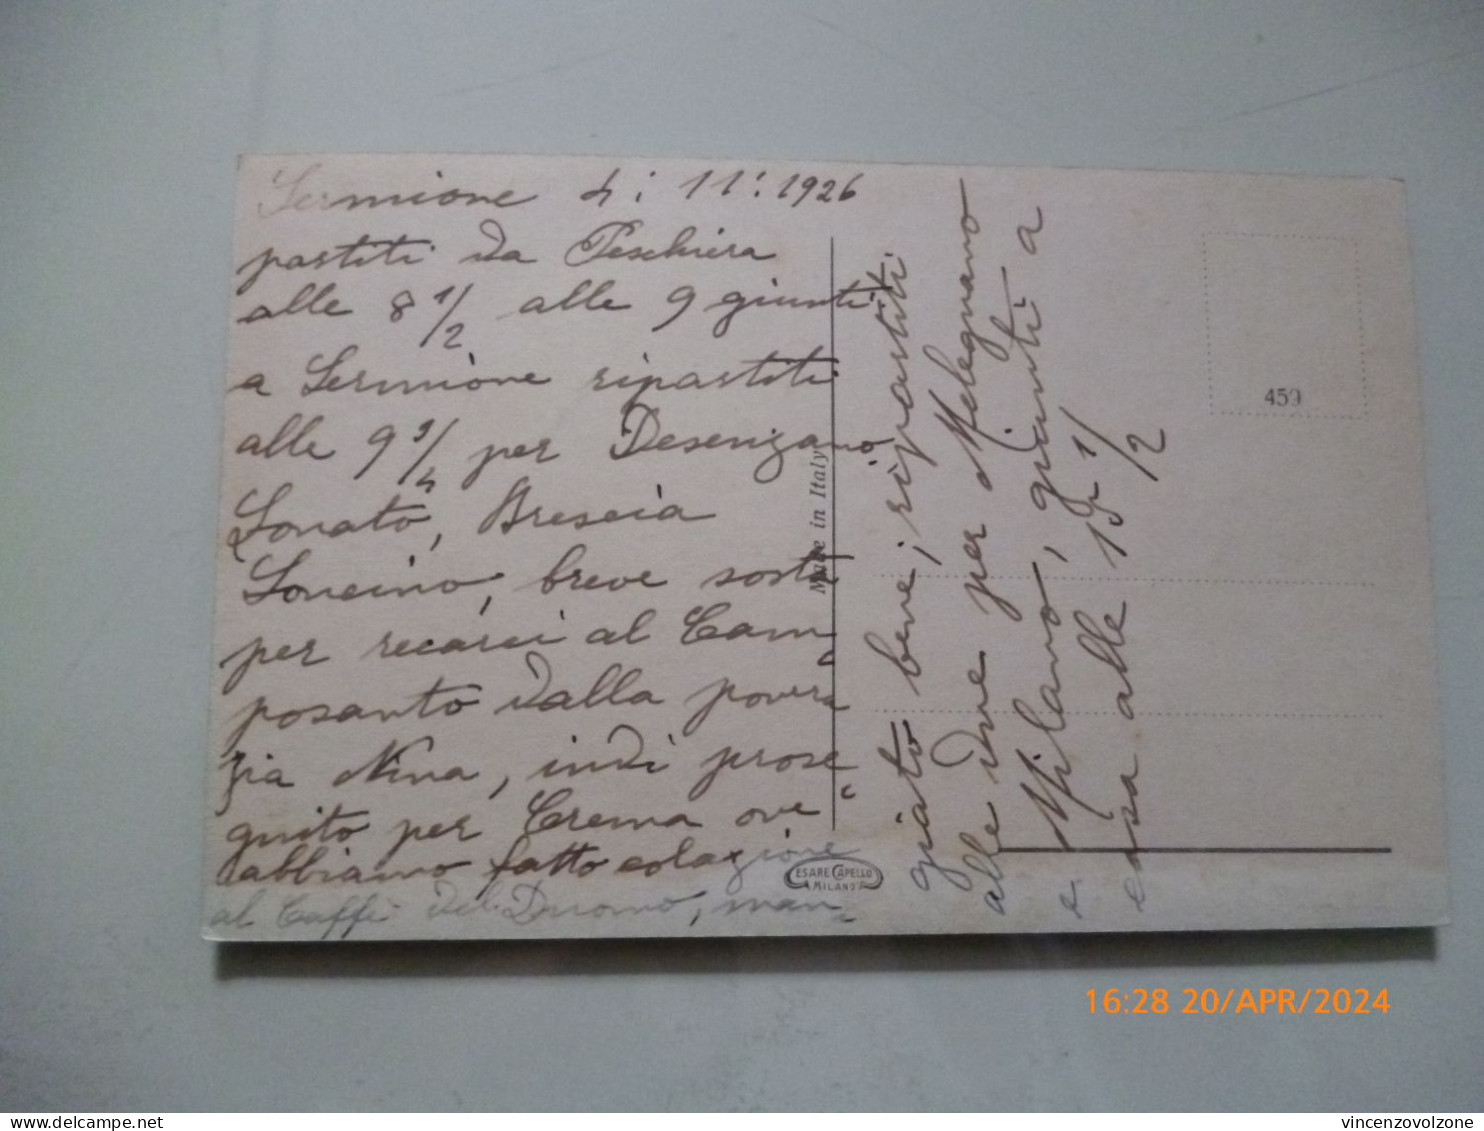 Sermione 4: 11: 1926
partiti da Peschiera
alle 8 1/2 alle 9 giunti
a Sermione ripartiti
alle 9 3/4 per Desenzano,
Lonato, Brescia
Soncino, breve sosta
per recarci al Cam
posanto dalla povera
zia Nina, indi prose
guito per Crema ove
abbiamo fatto colazione
al Caffè del Duomo, man
giato bene; ripartiti
alle due per Melegnano
e Milano, giunti a
casa alle 15 1/2
Made in Italy
CESARE CAPELLO
MILANO
459
16:28 20/APR/2024
vincenzovolzone